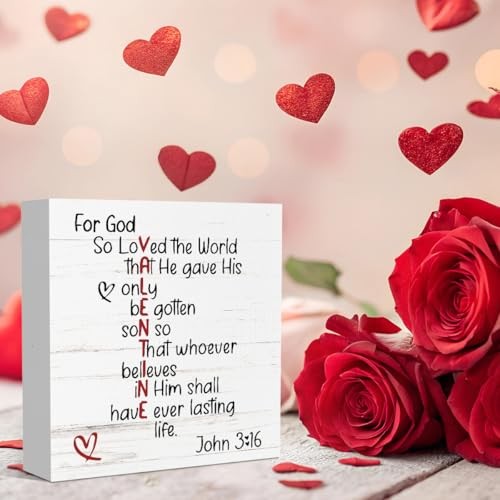 For God
So LoVed the World
thAt He gave His
onLy
bE gotten
soN so
That whoever
belIeves
iN Him shall
havE ever lasting
life.
John 3♥16